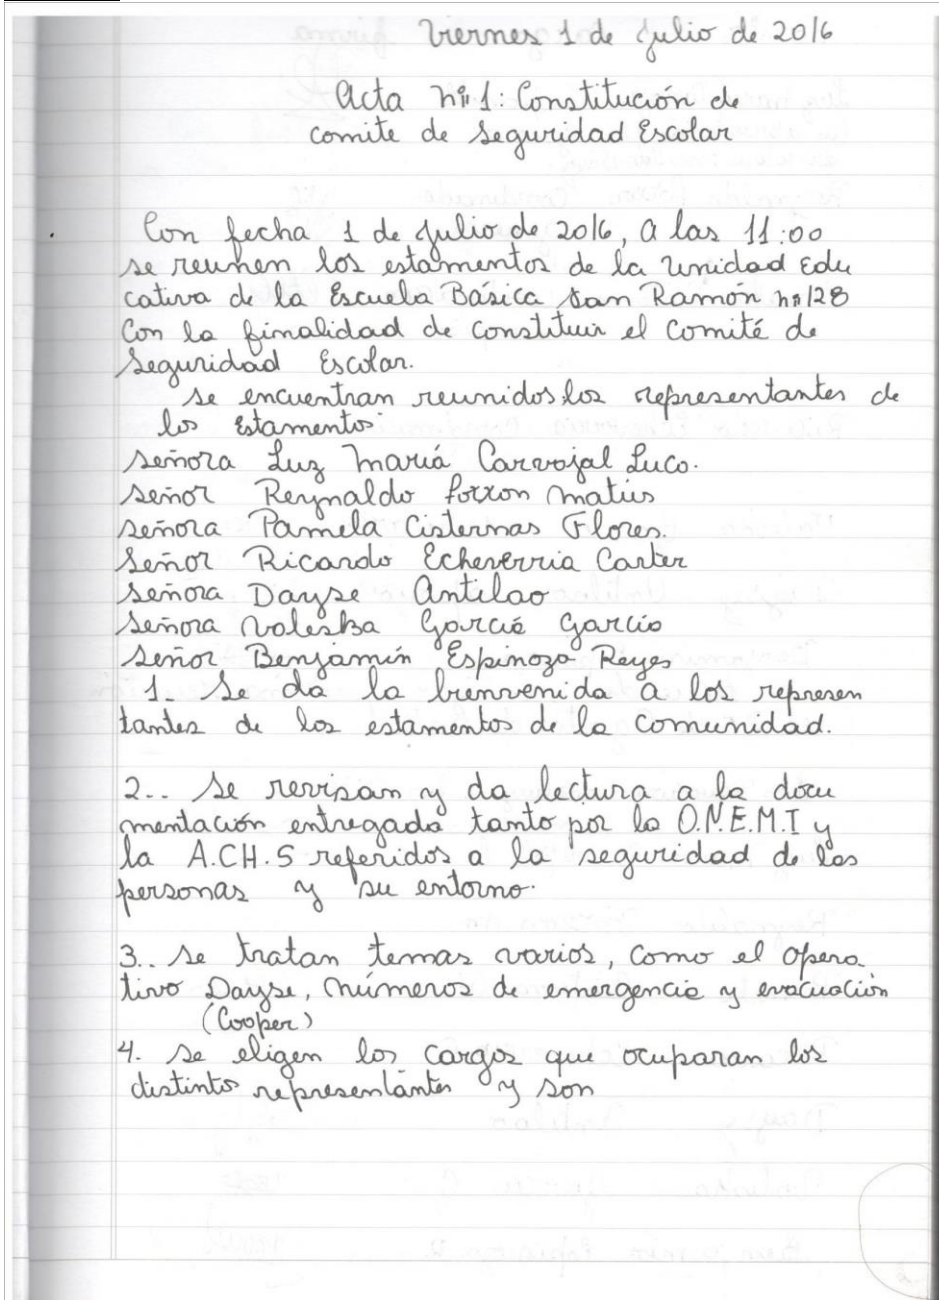 Viernes 1 de Julio de 2016
Acta nº 1: Constitución de
comite de Seguridad Escolar
Con fecha 1 de Julio de 2016, a las 11:00
se reunen los estamentos de la Unidad Edu
cativa de la Escuela Básica San Ramón nº 128
Con la finalidad de constituir el Comité de
Seguridad Escolar.
se encuentran reunidos los representantes de
los Estamentos
señora Luz María Carvajal Luco.
señor Reynaldo Matus
señora Pamela Cisternas Flores.
Señor Ricardo Echeverria Carter
señora Dayse Antilao
señora Valeska García García
señor Benjamín Espinoza Reyes
1. Se da la bienvenida a los represen
tantes de los estamentos de la Comunidad.
2.. Se revisan y da lectura a la docu
mentación entregada tanto por la O.N.E.M.I y
la A.CH.S referidos a la seguridad de las
personas y su entorno.
3.. se tratan temas varios, como el opera
tivo Dayse, números de emergencia y evacuación
(Cooper)
4. se eligen los cargos que ocuparan los
distintos representantes y son